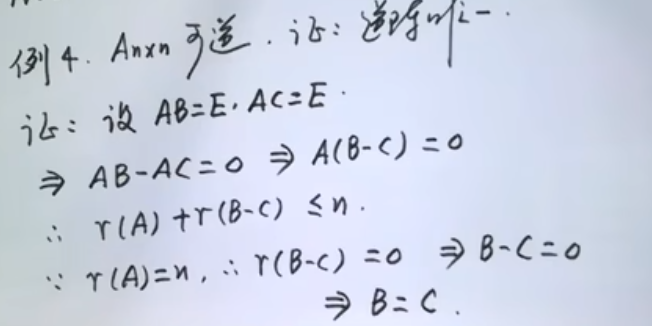 例4. Anxn 可逆. 证: 逆阵唯一.
证: 设 AB=E, AC=E.
⇒ AB-AC=0 ⇒ A(B-C)=0
∴ r(A)+r(B-C) ≤n.
∵ r(A)=n, ∴ r(B-C)=0 ⇒ B-C=0
⇒ B=C.